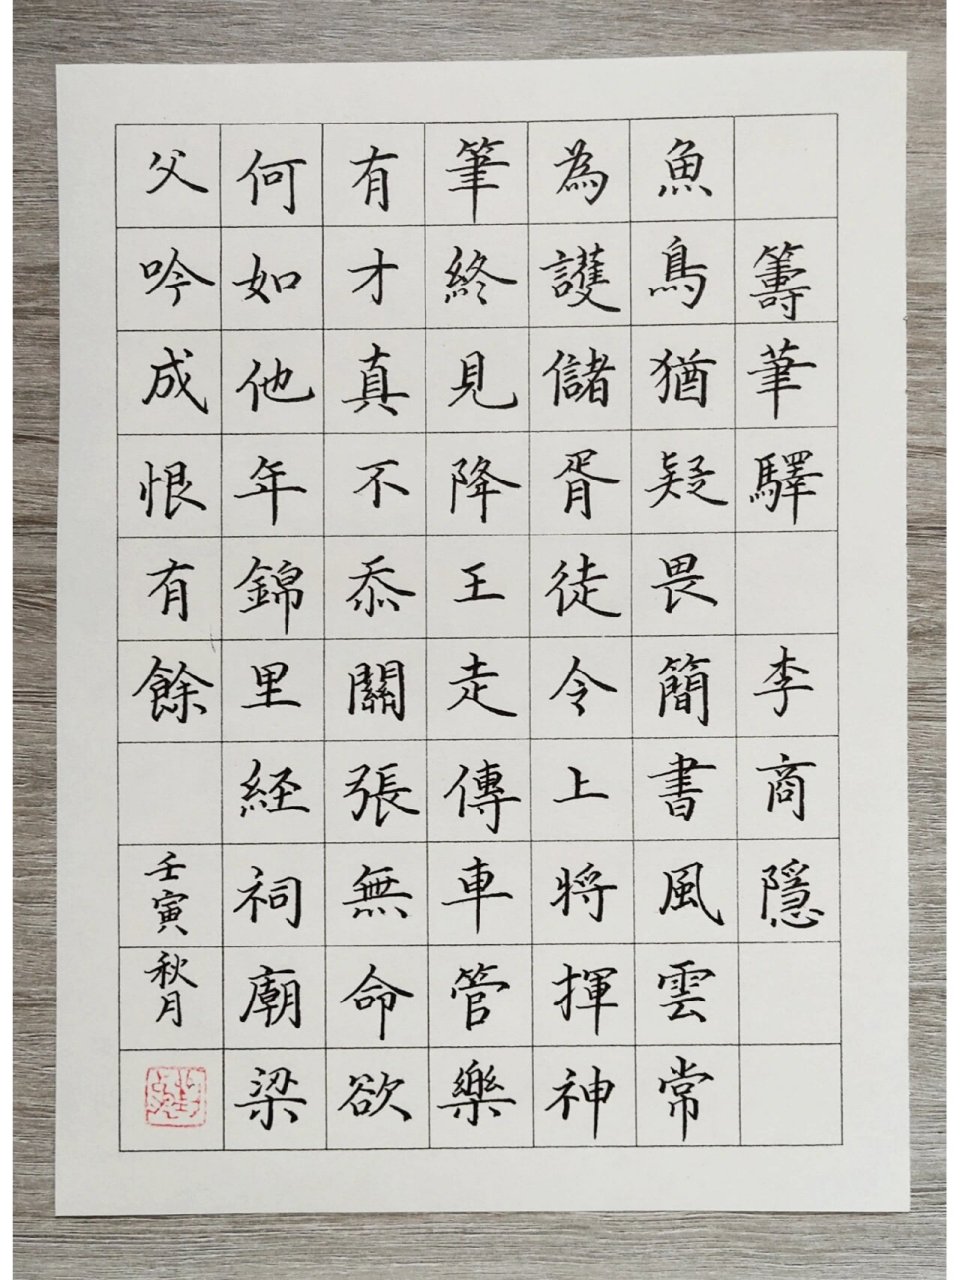 籌筆驛 李商隱
魚鳥猶疑畏簡書風雲常
為護儲胥徒令上將揮神
筆終見降王走傳車管樂
有才真不忝關張無命欲
何如他年錦里経祠廟梁
父吟成恨有餘 壬寅秋月